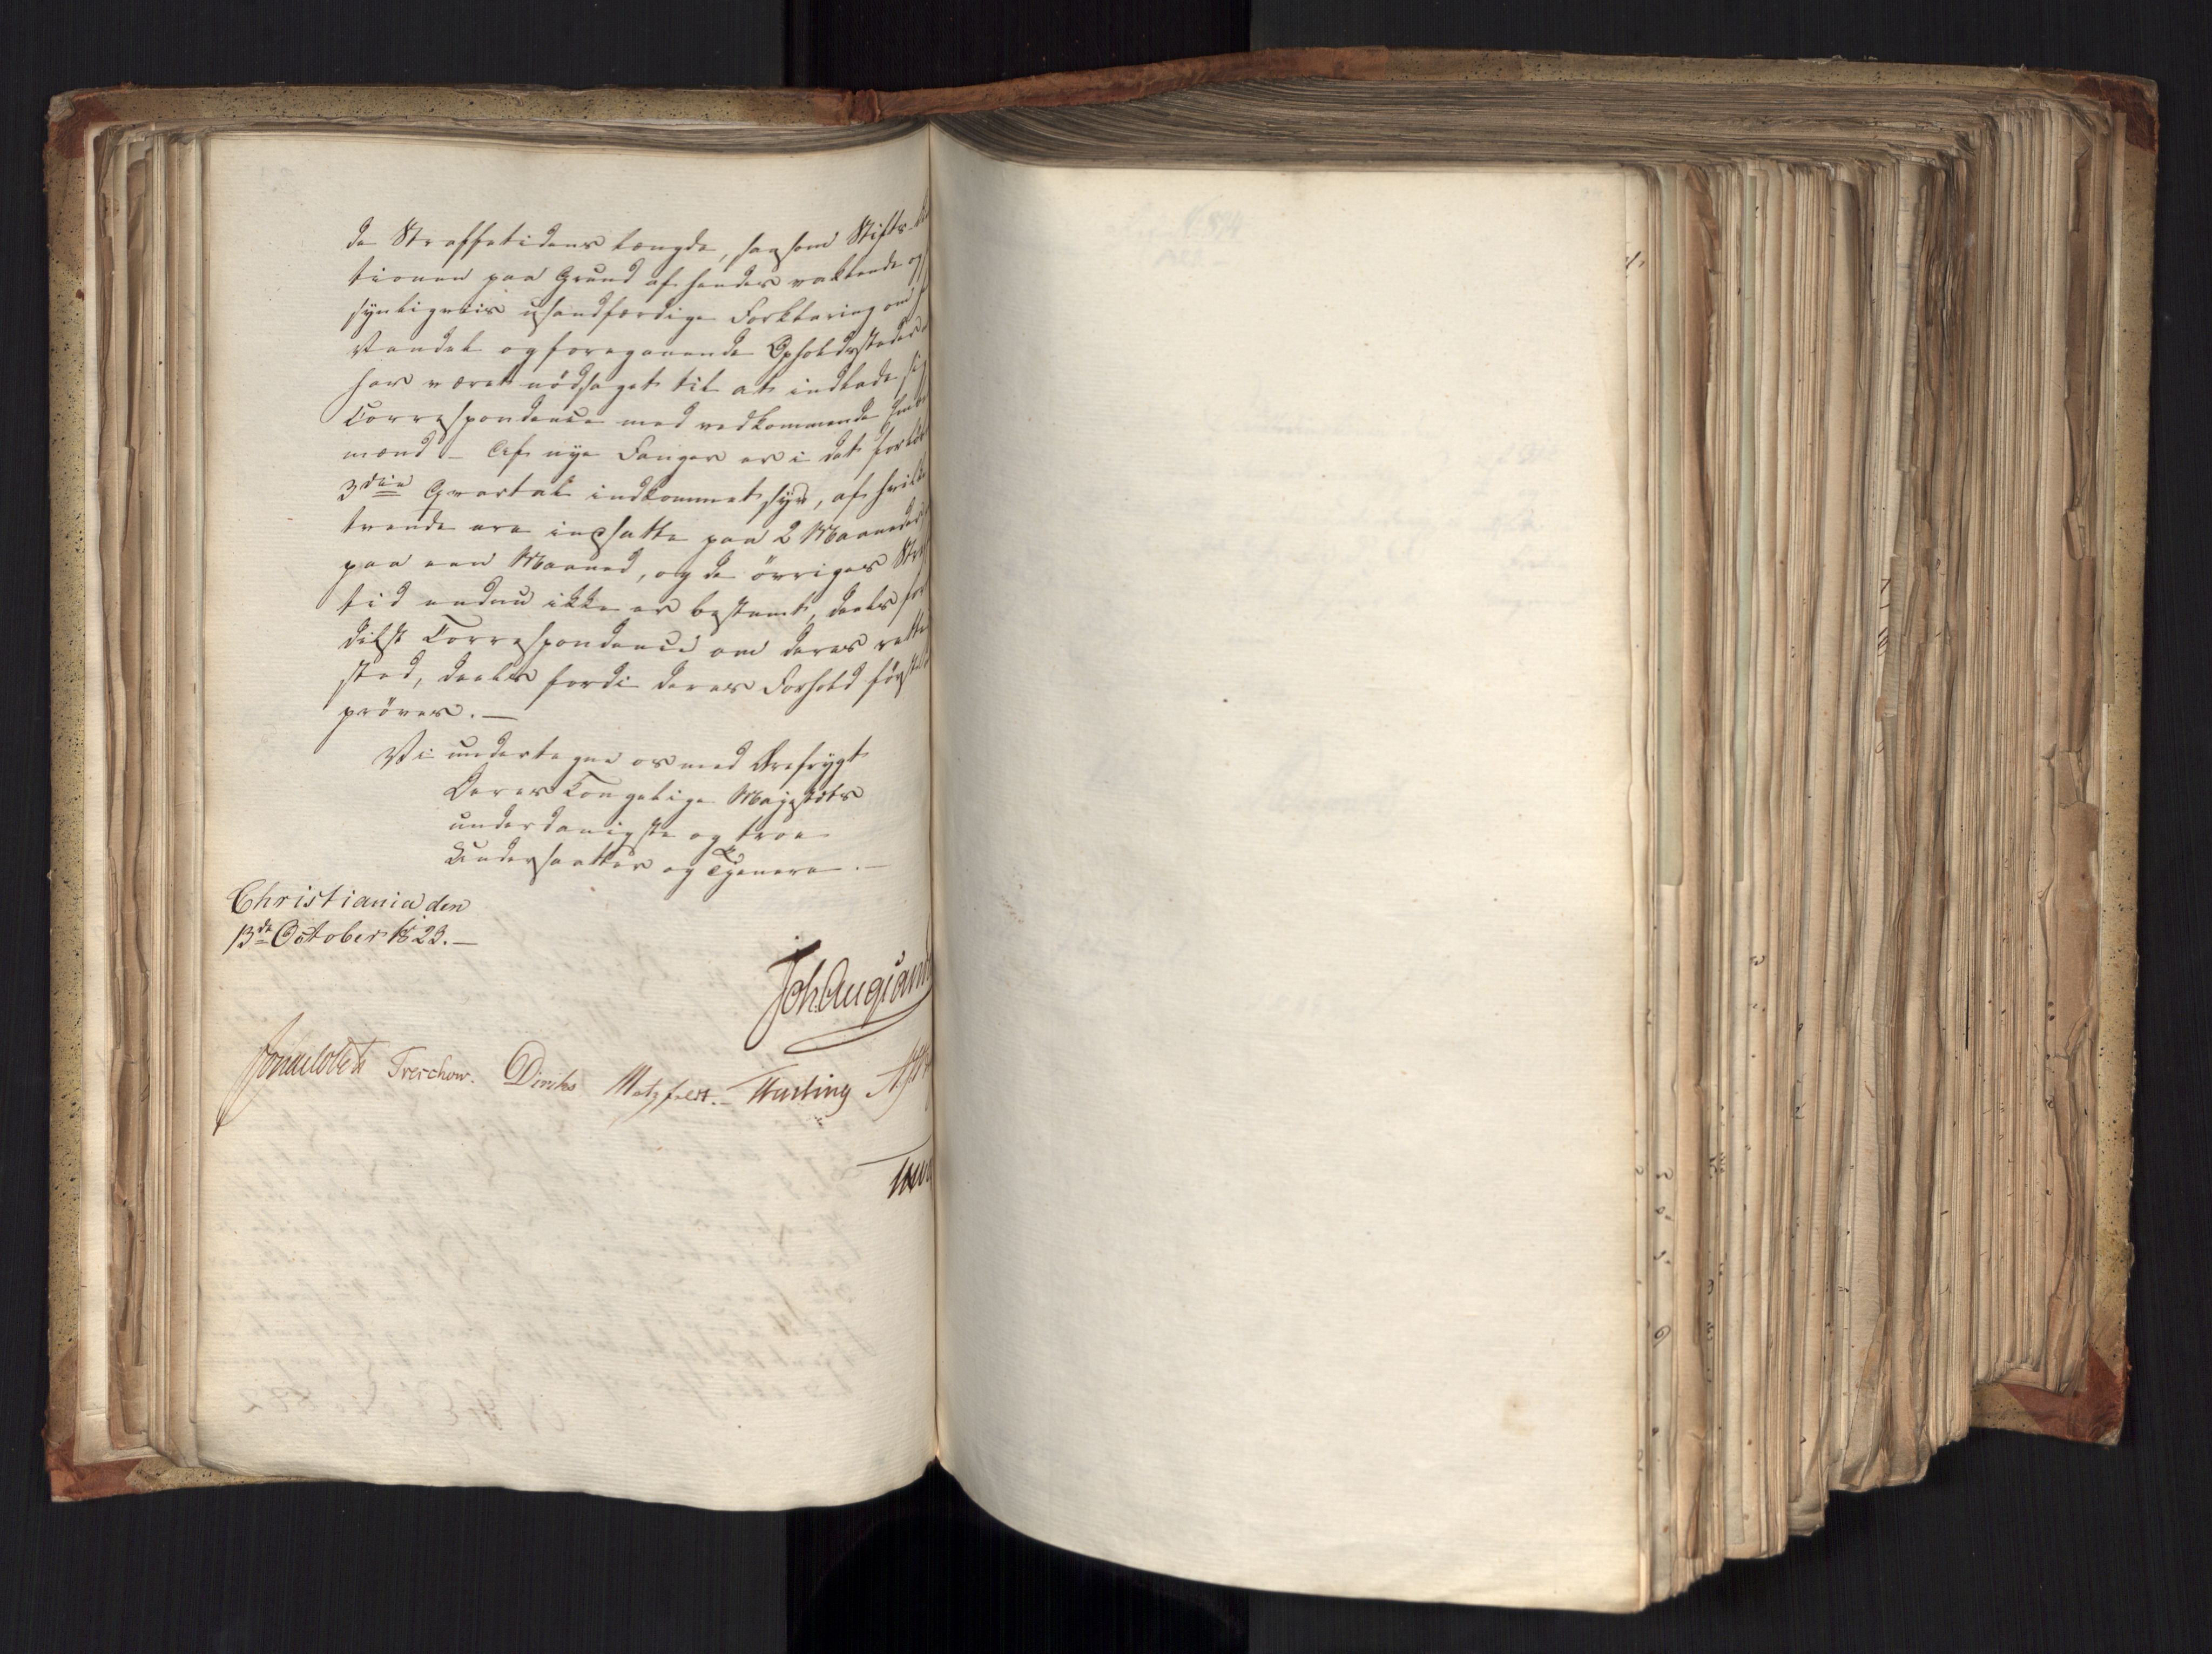 de Straffetidens Længde, saasom Stifts-
tionen paa Grund af hendes vaklende og
synligviis usandfærdige Forklaring om
Vandel og foregaaende Opholdssteder
har været nødsaget til at indlade sig
Correspondence med vedkommende Embe
mænd – Af nye Fanger er i det forløb
3die Qvartal indkommet syv, af hvilke
tvende ere indsatte paa 2 Maaneder
paa een Maaned, og de øvriges Straf
tid endnu ikke er bestemt, deels for
delst Correspondence om deres rette
sted, deels fordi deres Forhold først
prøves. –
Vi undertegne os med Ærefrygt
Deres Kongelige Majestæts
underdanigste og troe
Undersaatter og Tjenere. –
Christiania den
13de October 1823. –
Joh. Aug. Sand
Sommerfeldt Treschow. Diriks Motzfeldt. – Fasting